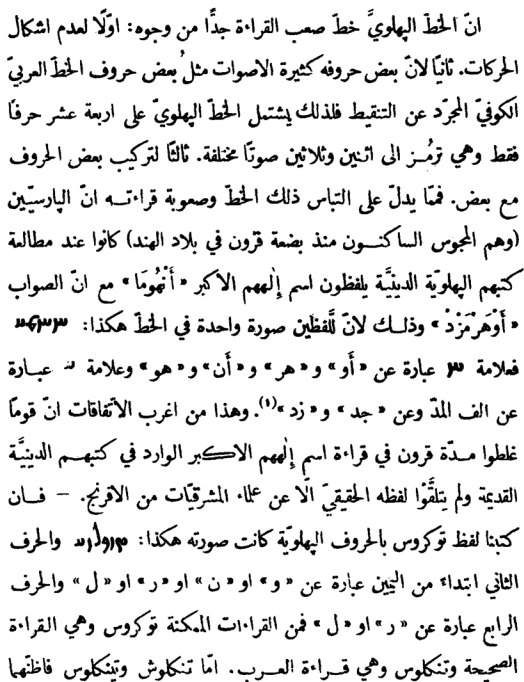 انّ الخطّ الپهلويَّ خطّ صعب القراءة جدًّا من وجوه: اوّلًا لعدم اشكال
الحركات. ثانيًا لانّ بعض حروفه كثيرة الاصوات مثلُ بعض حروف الخطّ العربيّ
الكوفيّ المجرّد عن التنقيط فلذلك يشتمل الخطّ الپهلويّ على اربعة عشر حرفًا
فقط وهي ترمُز الى اثنين وثلاثين صوتًا مختلفة. ثالثًا لتركيب بعض الحروف
مع بعض. فممّا يدلّ على التباس ذلك الخطّ وصعوبة قراءته انّ الپارسيّين
(وهم المجوس الساكنون منذ بضعة قرون في بلاد الهند) كانوا عند مطالعة
كتبهم الپهلويّة الدينيَّة يلفظون اسم إلٰههم الاكبر « أَنْهُومَا » مع انّ الصواب
« أَوْهَرْمَزْدْ » وذلك لانّ للَّفظين صورة واحدة في الخطّ هكذا:
فعلامة عبارة عن « أو » و « هر » و « أن » و « هو » وعلامة عبارة
عن الف المدّ وعن « جد » و « زد »⁽¹⁾. وهذا من اغرب الاتّفاقات انّ قومًا
غلطوا مدّة قرون في قراءة اسم إلٰههم الاكبر الوارد في كتبهم الدينيَّة
القديمة ولم يتلقَّوْا لفظه الحقيقيّ الّا عن علماء المشرقيّات من الافرنج. – فان
كتبنا لفظ توكروس بالحروف الپهلويّة كانت صورته هكذا: والحرف
الثاني ابتداءً من اليمين عبارة عن « و » او « ن » او « ر » او « ل » والحرف
الرابع عبارة عن « ر » او « ل » فمن القراءات الممكنة توكروس وهي القراءة
الصحيحة وتنكلوس وهي قراءة العرب. امّا تنكلوش وتينكلوس فاظنّهما